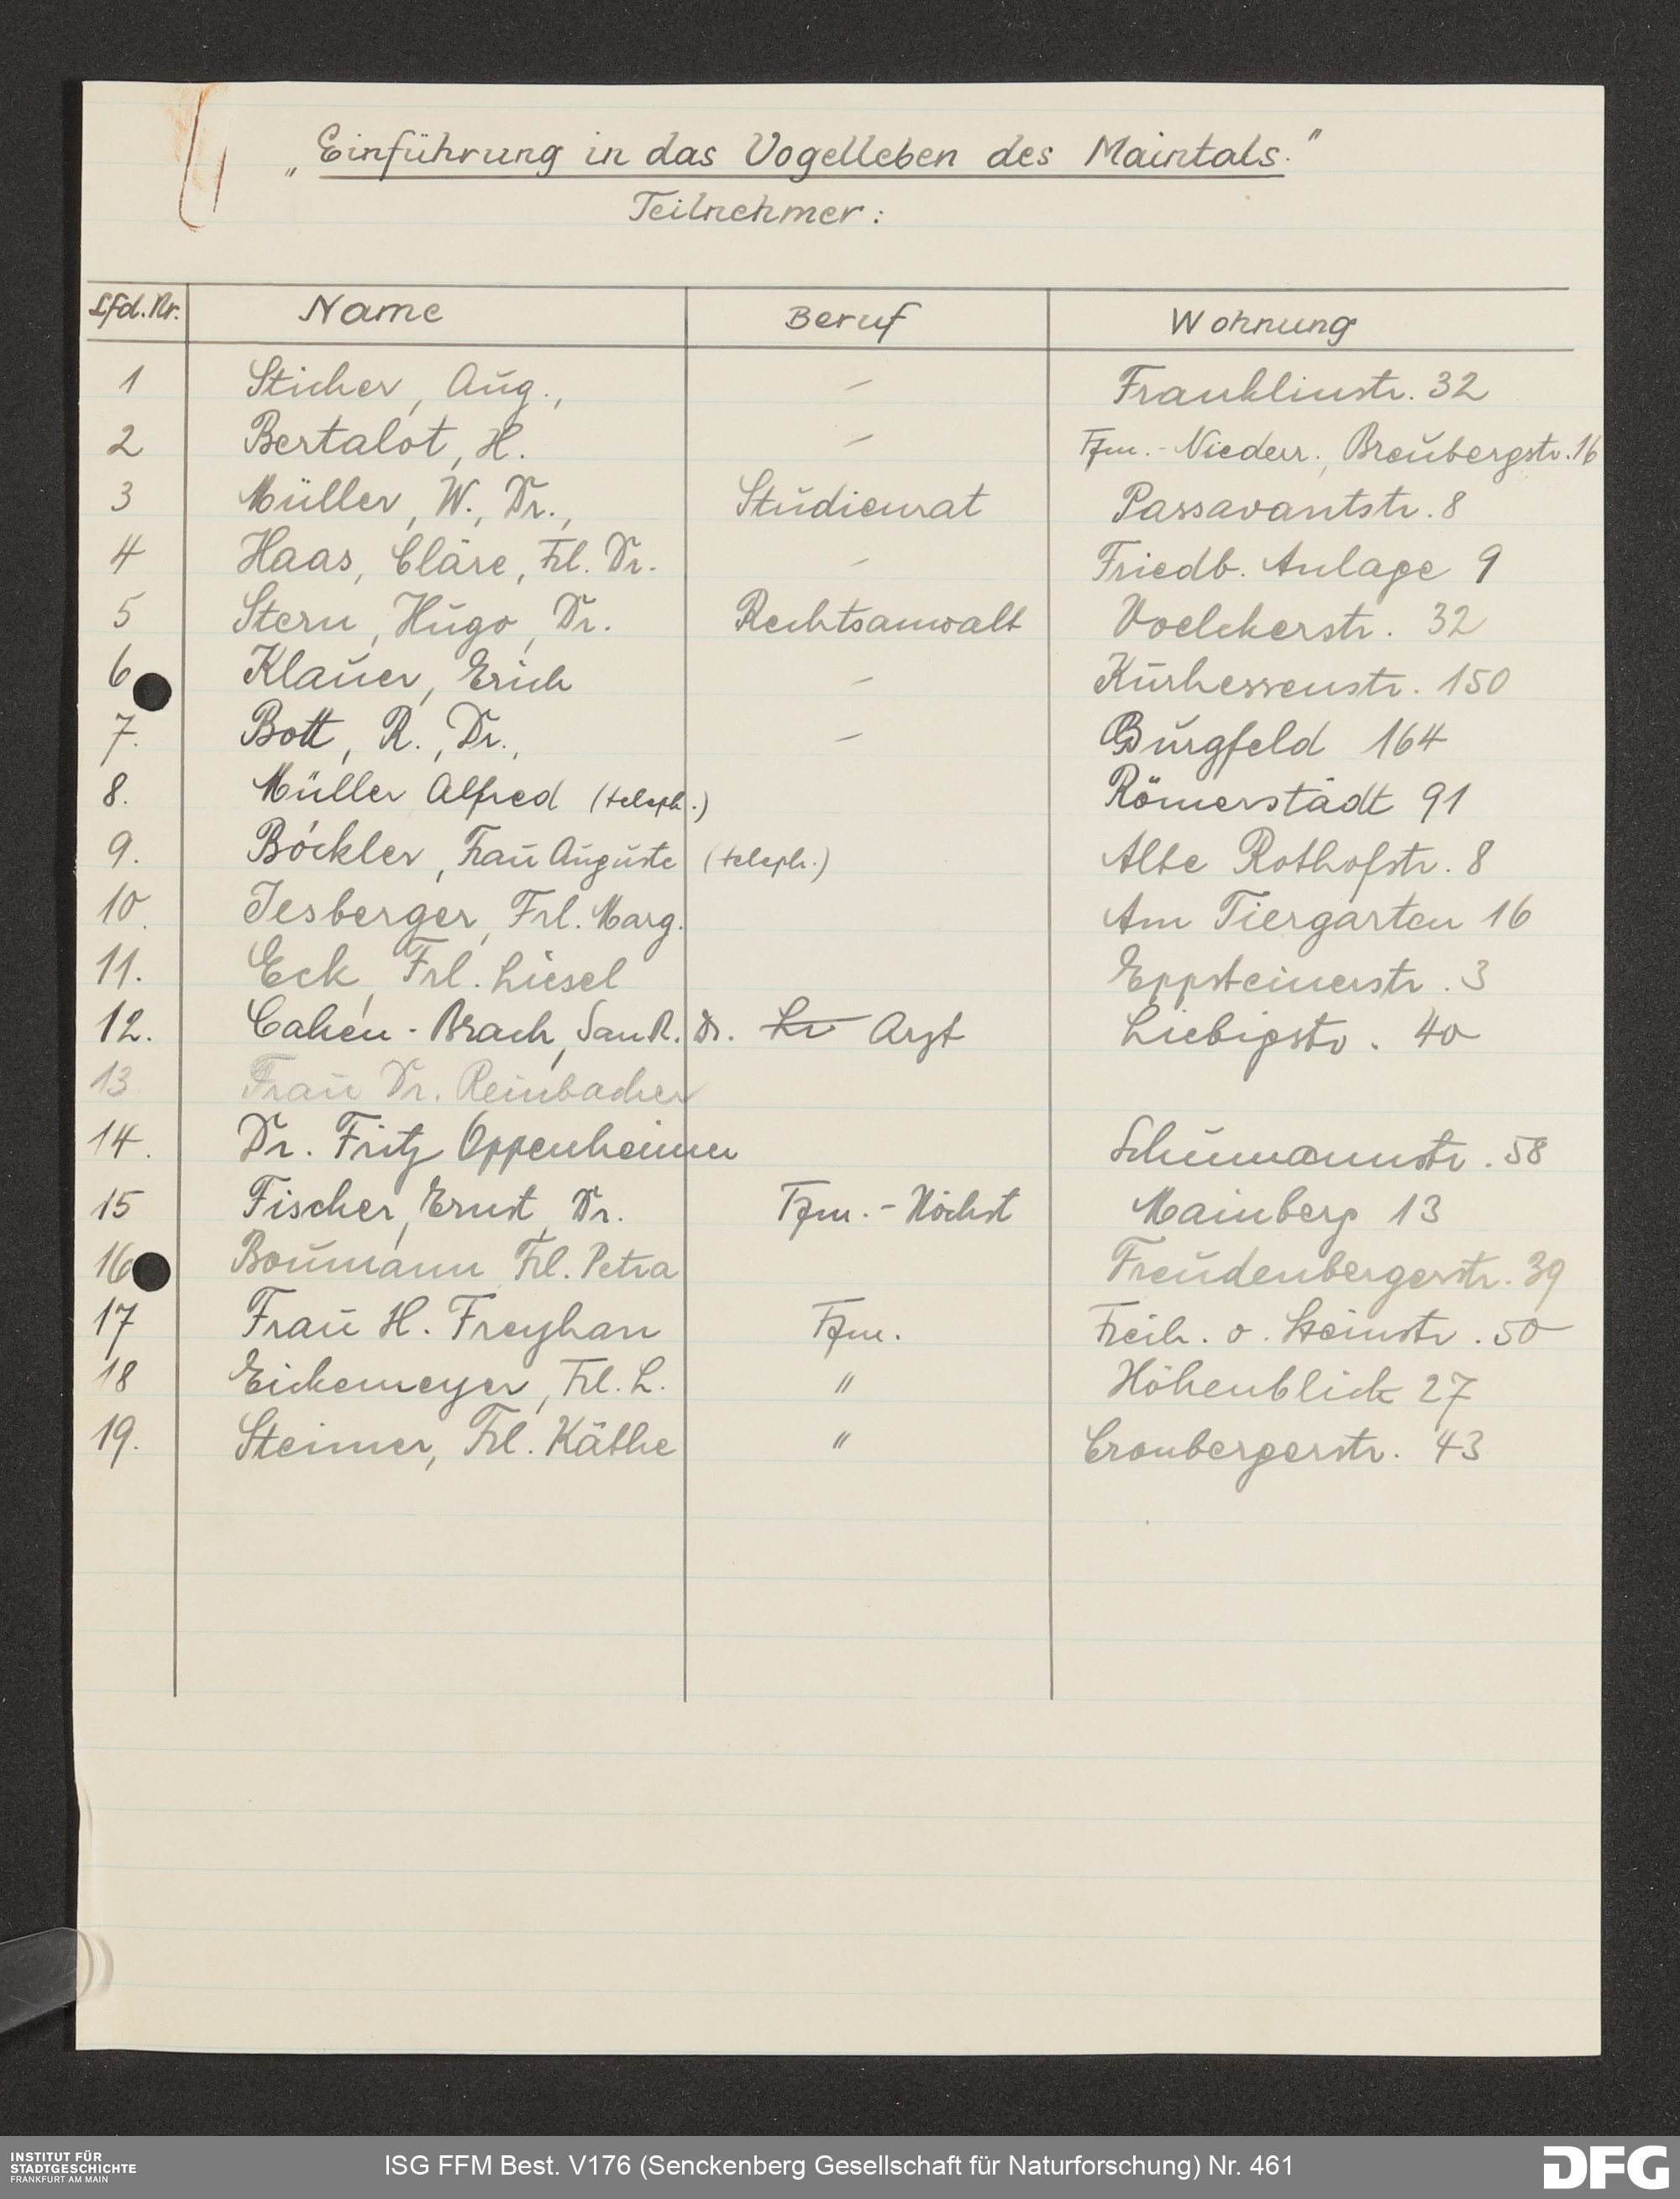 „Einführung in das Vogelleben des Maintals."
Teilnehmer:
Lfd. Nr. Name Beruf Wohnung
1 Sticher, Aug., – Franklinstr. 32
2 Bertalot, H. – Ffm.-Niederr., Breubergstr. 16
3 Müller, W., Dr., Studienrat Passavantstr. 8
4 Haas, Cläre, Frl. Dr. – Friedb. Anlage 9
5 Stern, Hugo, Dr. Rechtsanwalt Voelckerstr. 32
6 Klauer, Erich – Kurhessenstr. 150
7. Bott, R., Dr., – Burgfeld 164
8. Müller Alfred (teleph.) Römerstadt 91
9. Böckler, Frau Auguste (teleph.) Alte Rothofstr. 8
10. Jesberger, Frl. Marg. Am Tiergarten 16
11. Eck, Frl. Liesel Eppsteinerstr. 3
12. Cahen-Brach, San.R. Dr. Arzt Liebigstr. 40
13 Frau Dr. Reinbacher
14. Dr. Fritz Oppenheimer Schumannstr. 58
15 Fischer, Ernst, Dr. Ffm.-Höchst Mainberg 13
16 Boumann, Frl. Petra Freudenbergerstr. 39
17 Frau H. Freyhan Ffm. Freih. v. Steinstr. 50
18 Eickemeyer, Frl. L. " Höhenblick 27
19. Steimer, Frl. Käthe " Cronbergerstr. 43
INSTITUT FÜR
STADTGESCHICHTE
FRANKFURT AM MAIN
ISG FFM Best. V176 (Senckenberg Gesellschaft für Naturforschung) Nr. 461
DFG